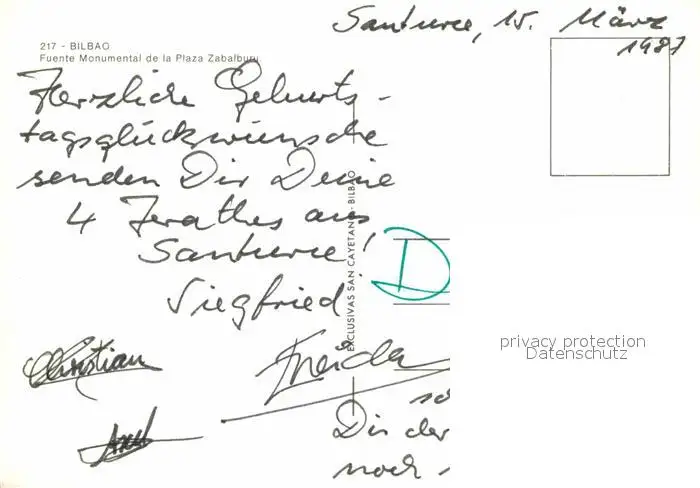 Santurce, 15. März
1987
217 - BILBAO
Fuente Monumental de la Plaza Zabalburu
Herzliche Geburts-
tagsglückwünsche
senden Dir Deine
4 aus
Santurce!
Siegfried
EXCLUSIVAS SAN CAYETANO - BILBAO
D
Christian
Frieda
Axel
so
Dir der
noch
privacy protection
Datenschutz